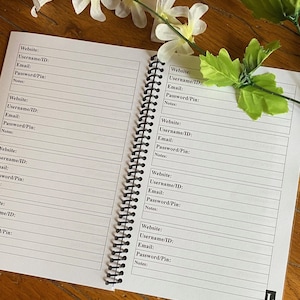 Website:
Username/ID:
Email:
Password/Pin:
Notes:
Website:
Username/ID:
Email:
Password/Pin:
Notes:
Website:
Username/ID:
Email:
Password/Pin:
Notes:
Website:
Username/ID:
Email:
Password/Pin:
Notes:
Website:
Username/ID:
Email:
Password/Pin:
Notes:
Website:
Username/ID:
Email:
Password/Pin:
Notes:
Website:
Username/ID:
Email:
Password/Pin:
Notes:
Website:
Username/ID:
Email:
Password/Pin:
Notes: